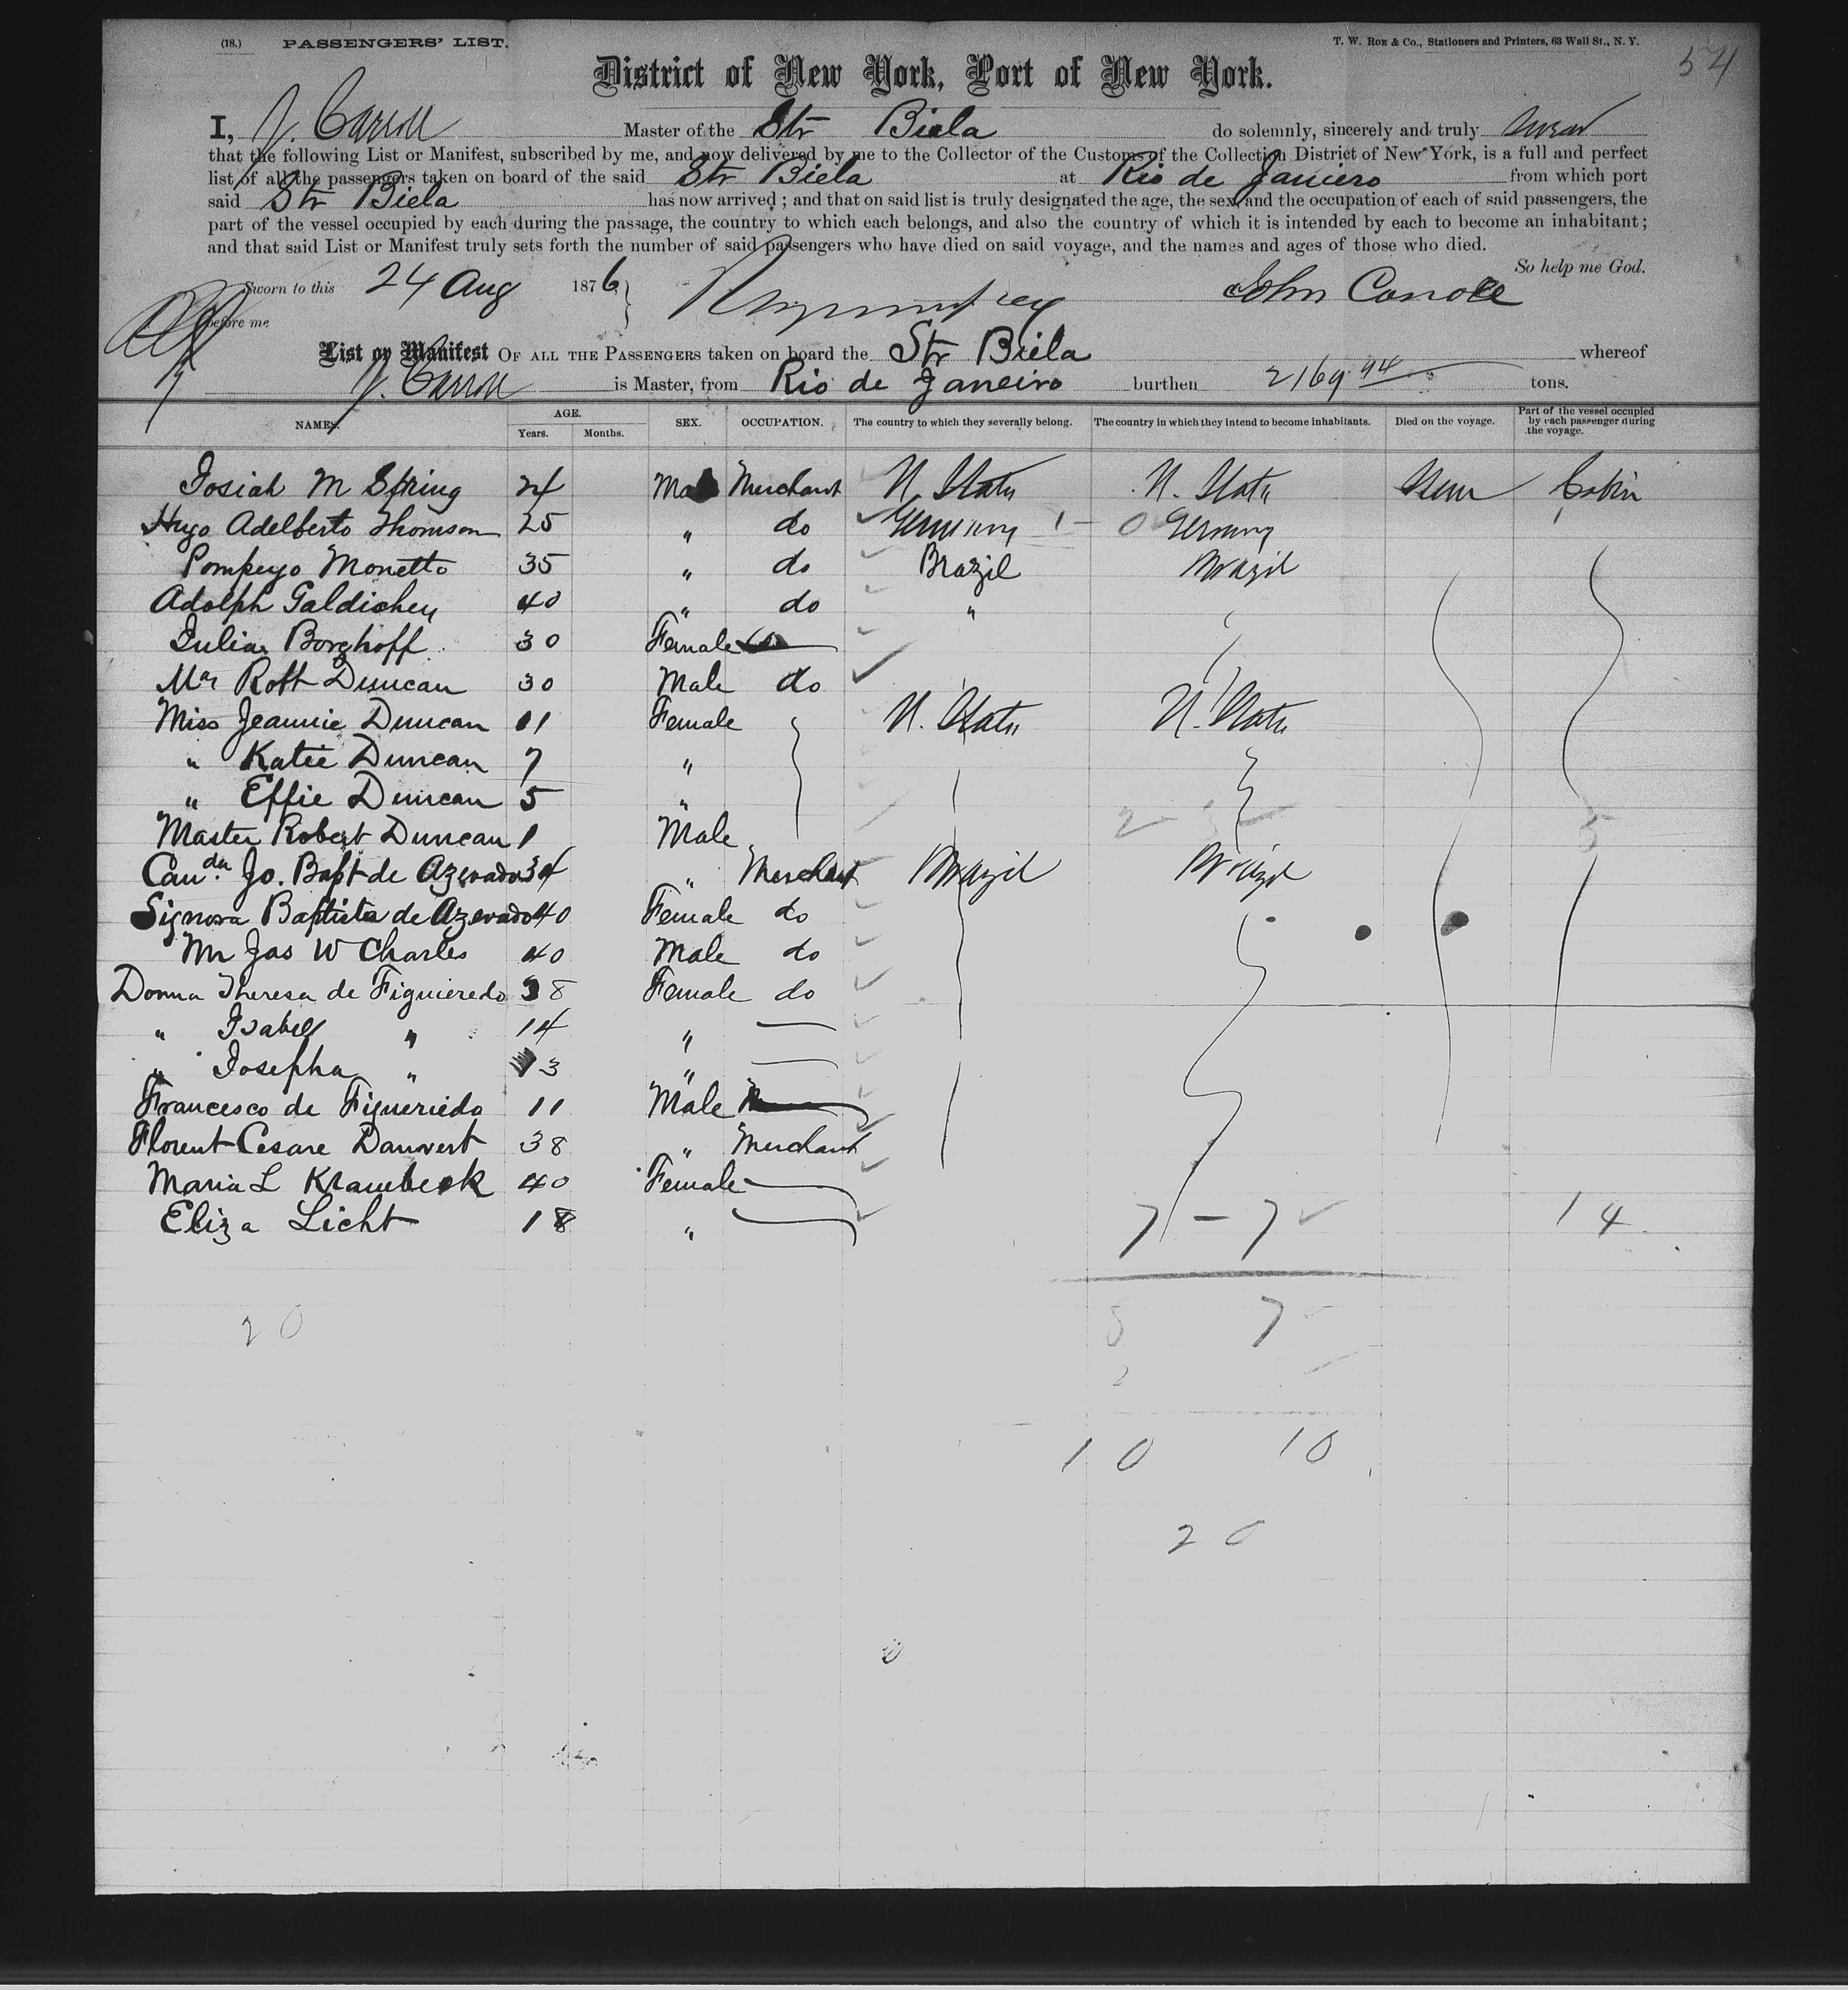 (18.) PASSENGERS' LIST. T. W. Roe & Co., Stationers and Printers, 63 Wall St., N. Y.
54
District of New York, Port of New York.
I, J. Carroll Master of the Str Biela do solemnly, sincerely and truly swear
that the following List or Manifest, subscribed by me, and now delivered by me to the Collector of the Customs of the Collection District of New York, is a full and perfect
list of all the passengers taken on board of the said Str Biela at Rio de Janiero from which port
said Str Biela has now arrived; and that on said list is truly designated the age, the sex and the occupation of each of said passengers, the
part of the vessel occupied by each during the passage, the country to which each belongs, and also the country of which it is intended by each to become an inhabitant;
and that said List or Manifest truly sets forth the number of said passengers who have died on said voyage, and the names and ages of those who died.
So help me God.
Sworn to this 24 Aug 1876 John Carroll
before me
List or Manifest OF ALL THE PASSENGERS taken on board the Str Biela whereof
J. Carroll is Master, from Rio de Janeiro burthen 2169 94 tons.
NAMES. AGE. Years. Months. SEX. OCCUPATION. The country to which they severally belong. The country in which they intend to become inhabitants. Died on the voyage. Part of the vessel occupied by each passenger during the voyage.
Josiah M Spring 24 Male Merchant U. States U. States None Cabin
Hugo Adelberto Thomson 25 " do Germany 1 - 0 Germany
Pompeyo Monetto 35 " do Brazil Brazil
Adolph Galdichey 40 " do "
Julia Borghoff 30 Female
Mr Robt Duncan 30 Male do
Miss Jeannie Duncan 11 Female U. States U. States
" Katie Duncan 7 "
" Effie Duncan 5 "
Master Robert Duncan 1 Male 2 - 3 5
Jo. Bapt de Azevado 34 " Merchant Brazil Brazil
Signora Baptista de Azevado 40 Female do
Mr Jas W Charles 40 Male do
Donna Theresa de Figuieredo 38 Female do
" Isabell " 14 " —
" Josepha " 13 " —
Francesco de Figuerieda 11 Male
Florent Cesare Dauvert 38 " Merchant
Maria L Krambeck 40 Female
Eliza Licht 18 " 7 - 7 14
20 5 7
2
10 10
20